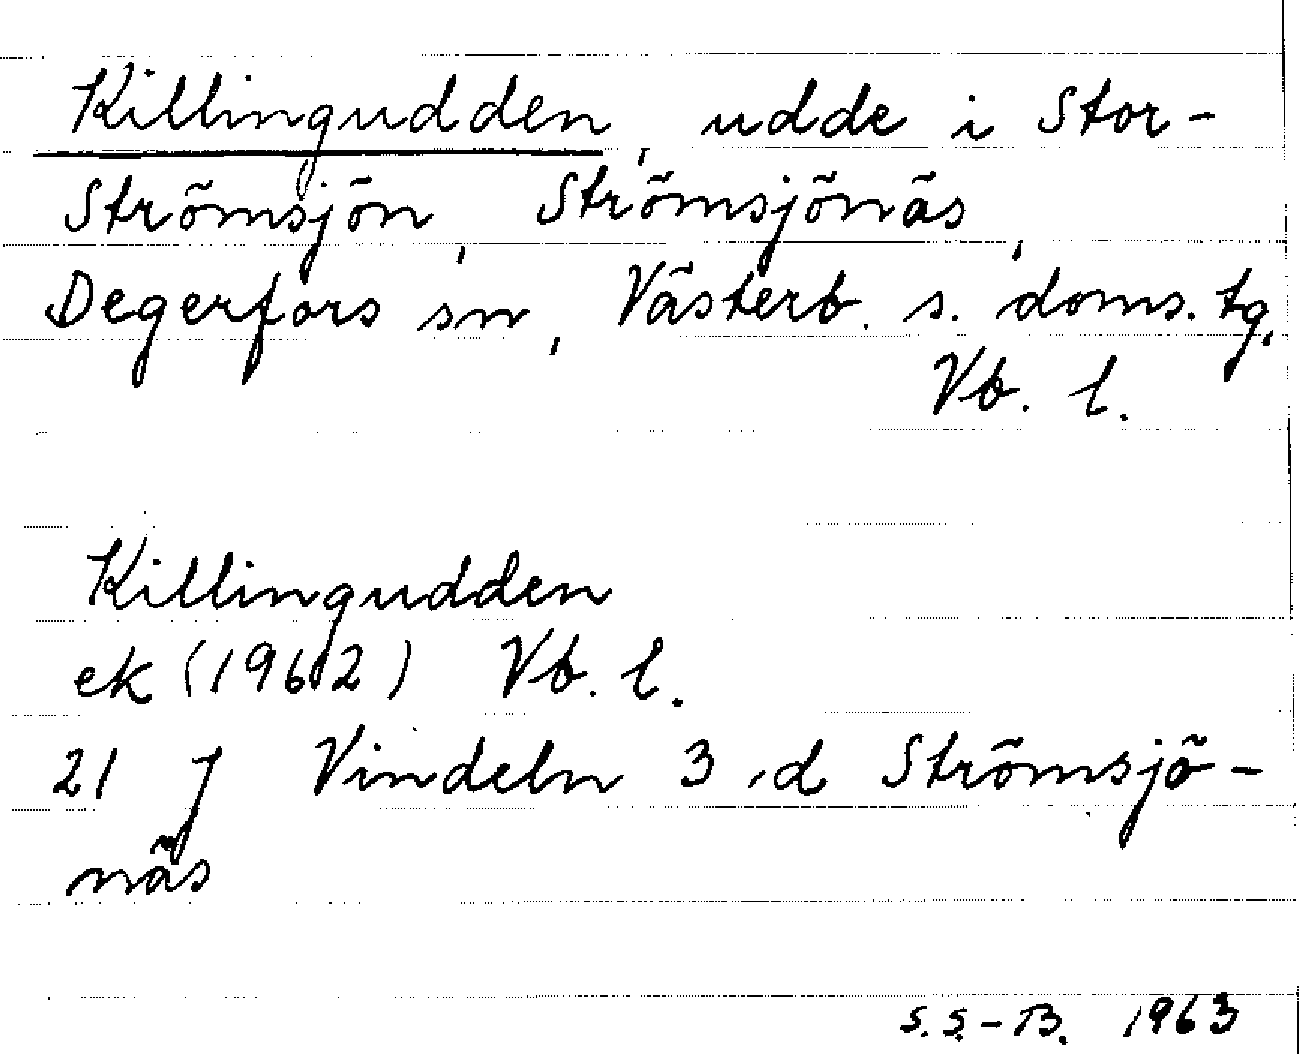 Killingudden, udde i Stor-
Strömsjön, Strömsjönäs,
Degerfors sn, Västerb. s. doms. tg,
Vb. l.
Killingudden
ek (1962) Vb. l.
21 J Vindeln 3 d Strömsjö-
näs
S. S.-B. 1963